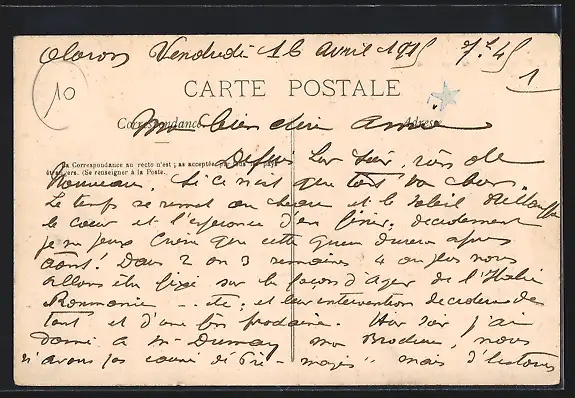 Oloron Vendredi 16 Avril 1915 7h 45
10
1
CARTE POSTALE
Correspondance Adresse
Ma bien chère Amie
La Correspondance au recto n'est pas acceptée par tous les pays
étrangers. (Se renseigner à la Poste.)
Depuis hier soir, rien de
Nouveau, si ce n'est que tout va bien.
Le temps se remet au beau et le soleil
le cœur et l'espérance d'en finir, décidément
je ne peux croire que cette guerre durera après
Août! Dans 2 ou 3 semaines 4 au plus nous
allons être fixé sur la façon d'agir de l'Italie
Roumanie - etc, et leur intervention décidera de
tout et d'une fin prochaine. Hier soir j'ai
donné à Mr Dumay ma Brochure, nous
n'avons pas causé de "Pri-mages" mais d'histoires